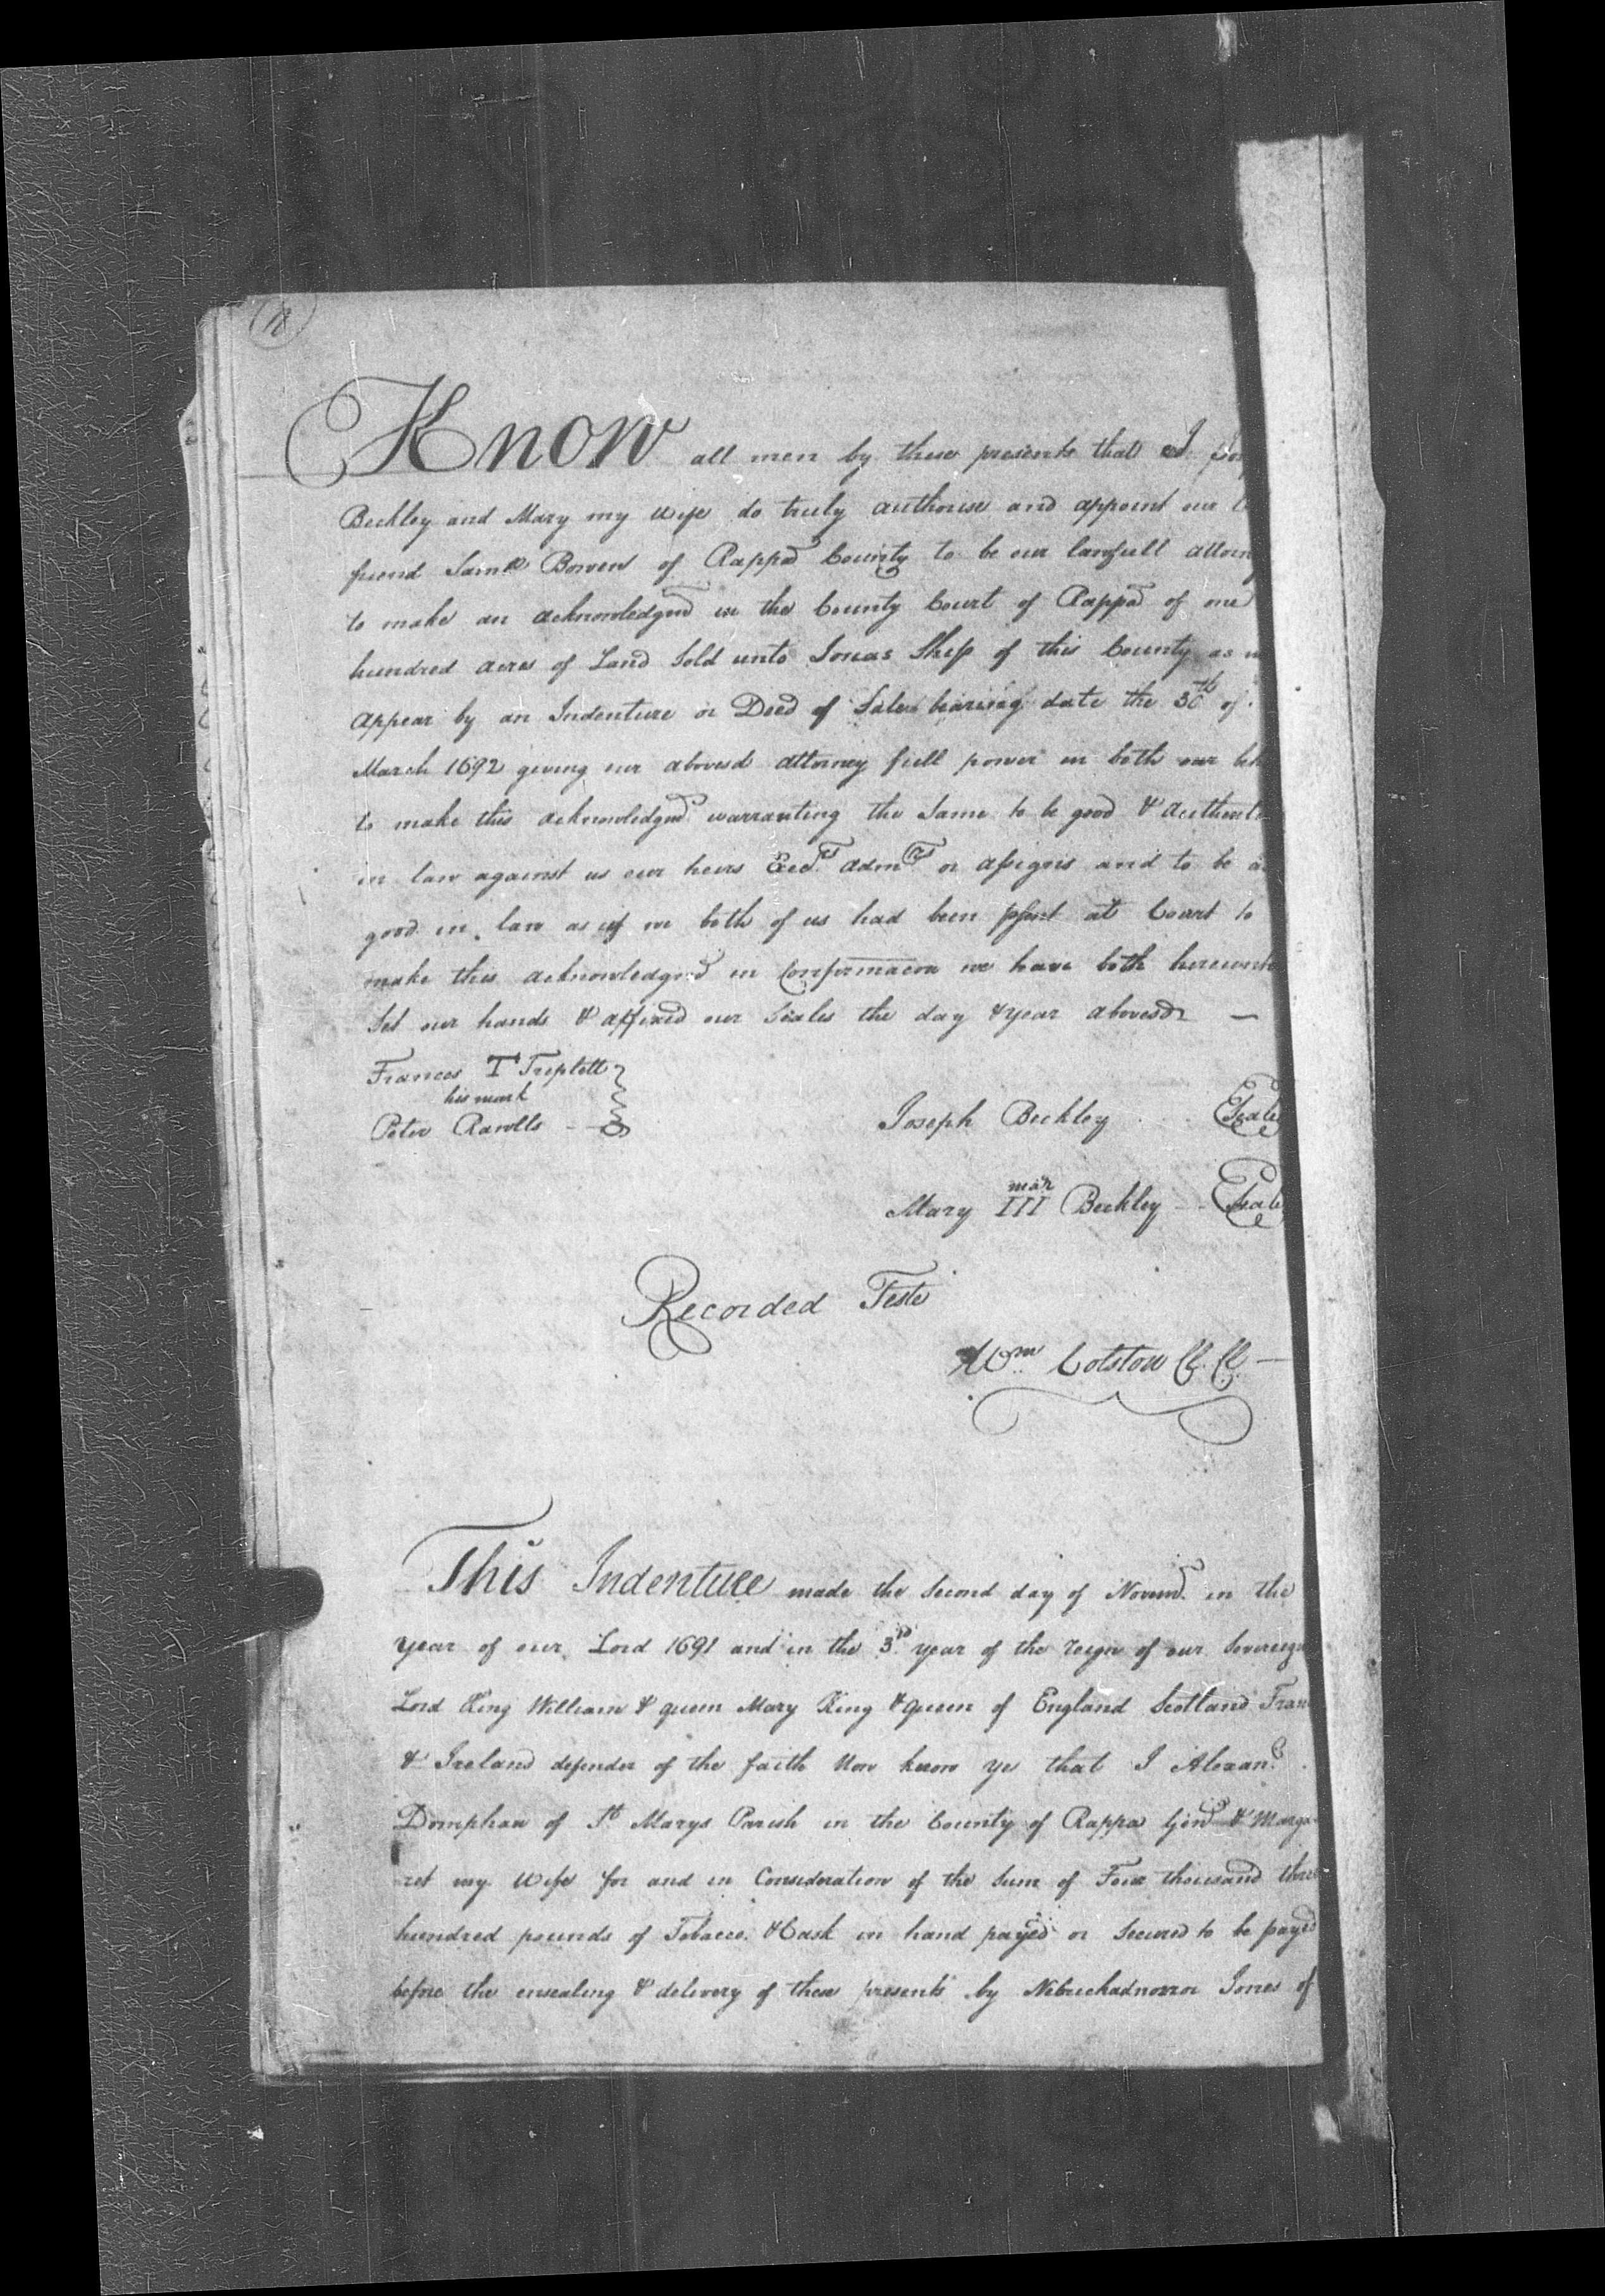 Know all men by these presents that I
Beckley and Mary my wife do truly authorise and appoint our
friend Samll Bowen of Rappa County to be our lawfull attorn
to make an acknowledgmt in the County Court of Rappa of one
hundred acres of Land Sold unto Jonas Ship of this County as
appear by an Indenture or Deed of Sale bearing date the 30th of
March 1692 giving our abovesd attorney full power in both our beh
to make this acknowledgmt warranting the Same to be good & authent
in law against us our heirs Execrs admrs or assigns and to be as
good in law as if we both of us had been psent at Court to
make this acknowledgmt in Confirmacon we have both hereunto
Set our hands & affixed our Seales the day & year abovesd —
Frances T Triplett
his mark
Peter Rawlls
Joseph Beckley Seale
mar
Mary III Beckley Seale
Recorded Teste
Wm Colston Cl. Cl. —
This Indenture made the Second day of Novem. in the
year of our Lord 1691 and in the 3d year of the reign of our Sovereign
Lord King William & queen Mary King & queen of England Scotland Fran
& Ireland defender of the faith Now know ye that I Alexan.
Domphan of St Marys Parish in the County of Rappa Gent & Marga
ret my wife for and in Consideration of the Sum of Four thousand three
hundred pounds of Tobacco & Cask in hand payed or Secured to be payed
before the ensealing & delivery of these presents by Nebuchadnezzor Jones of